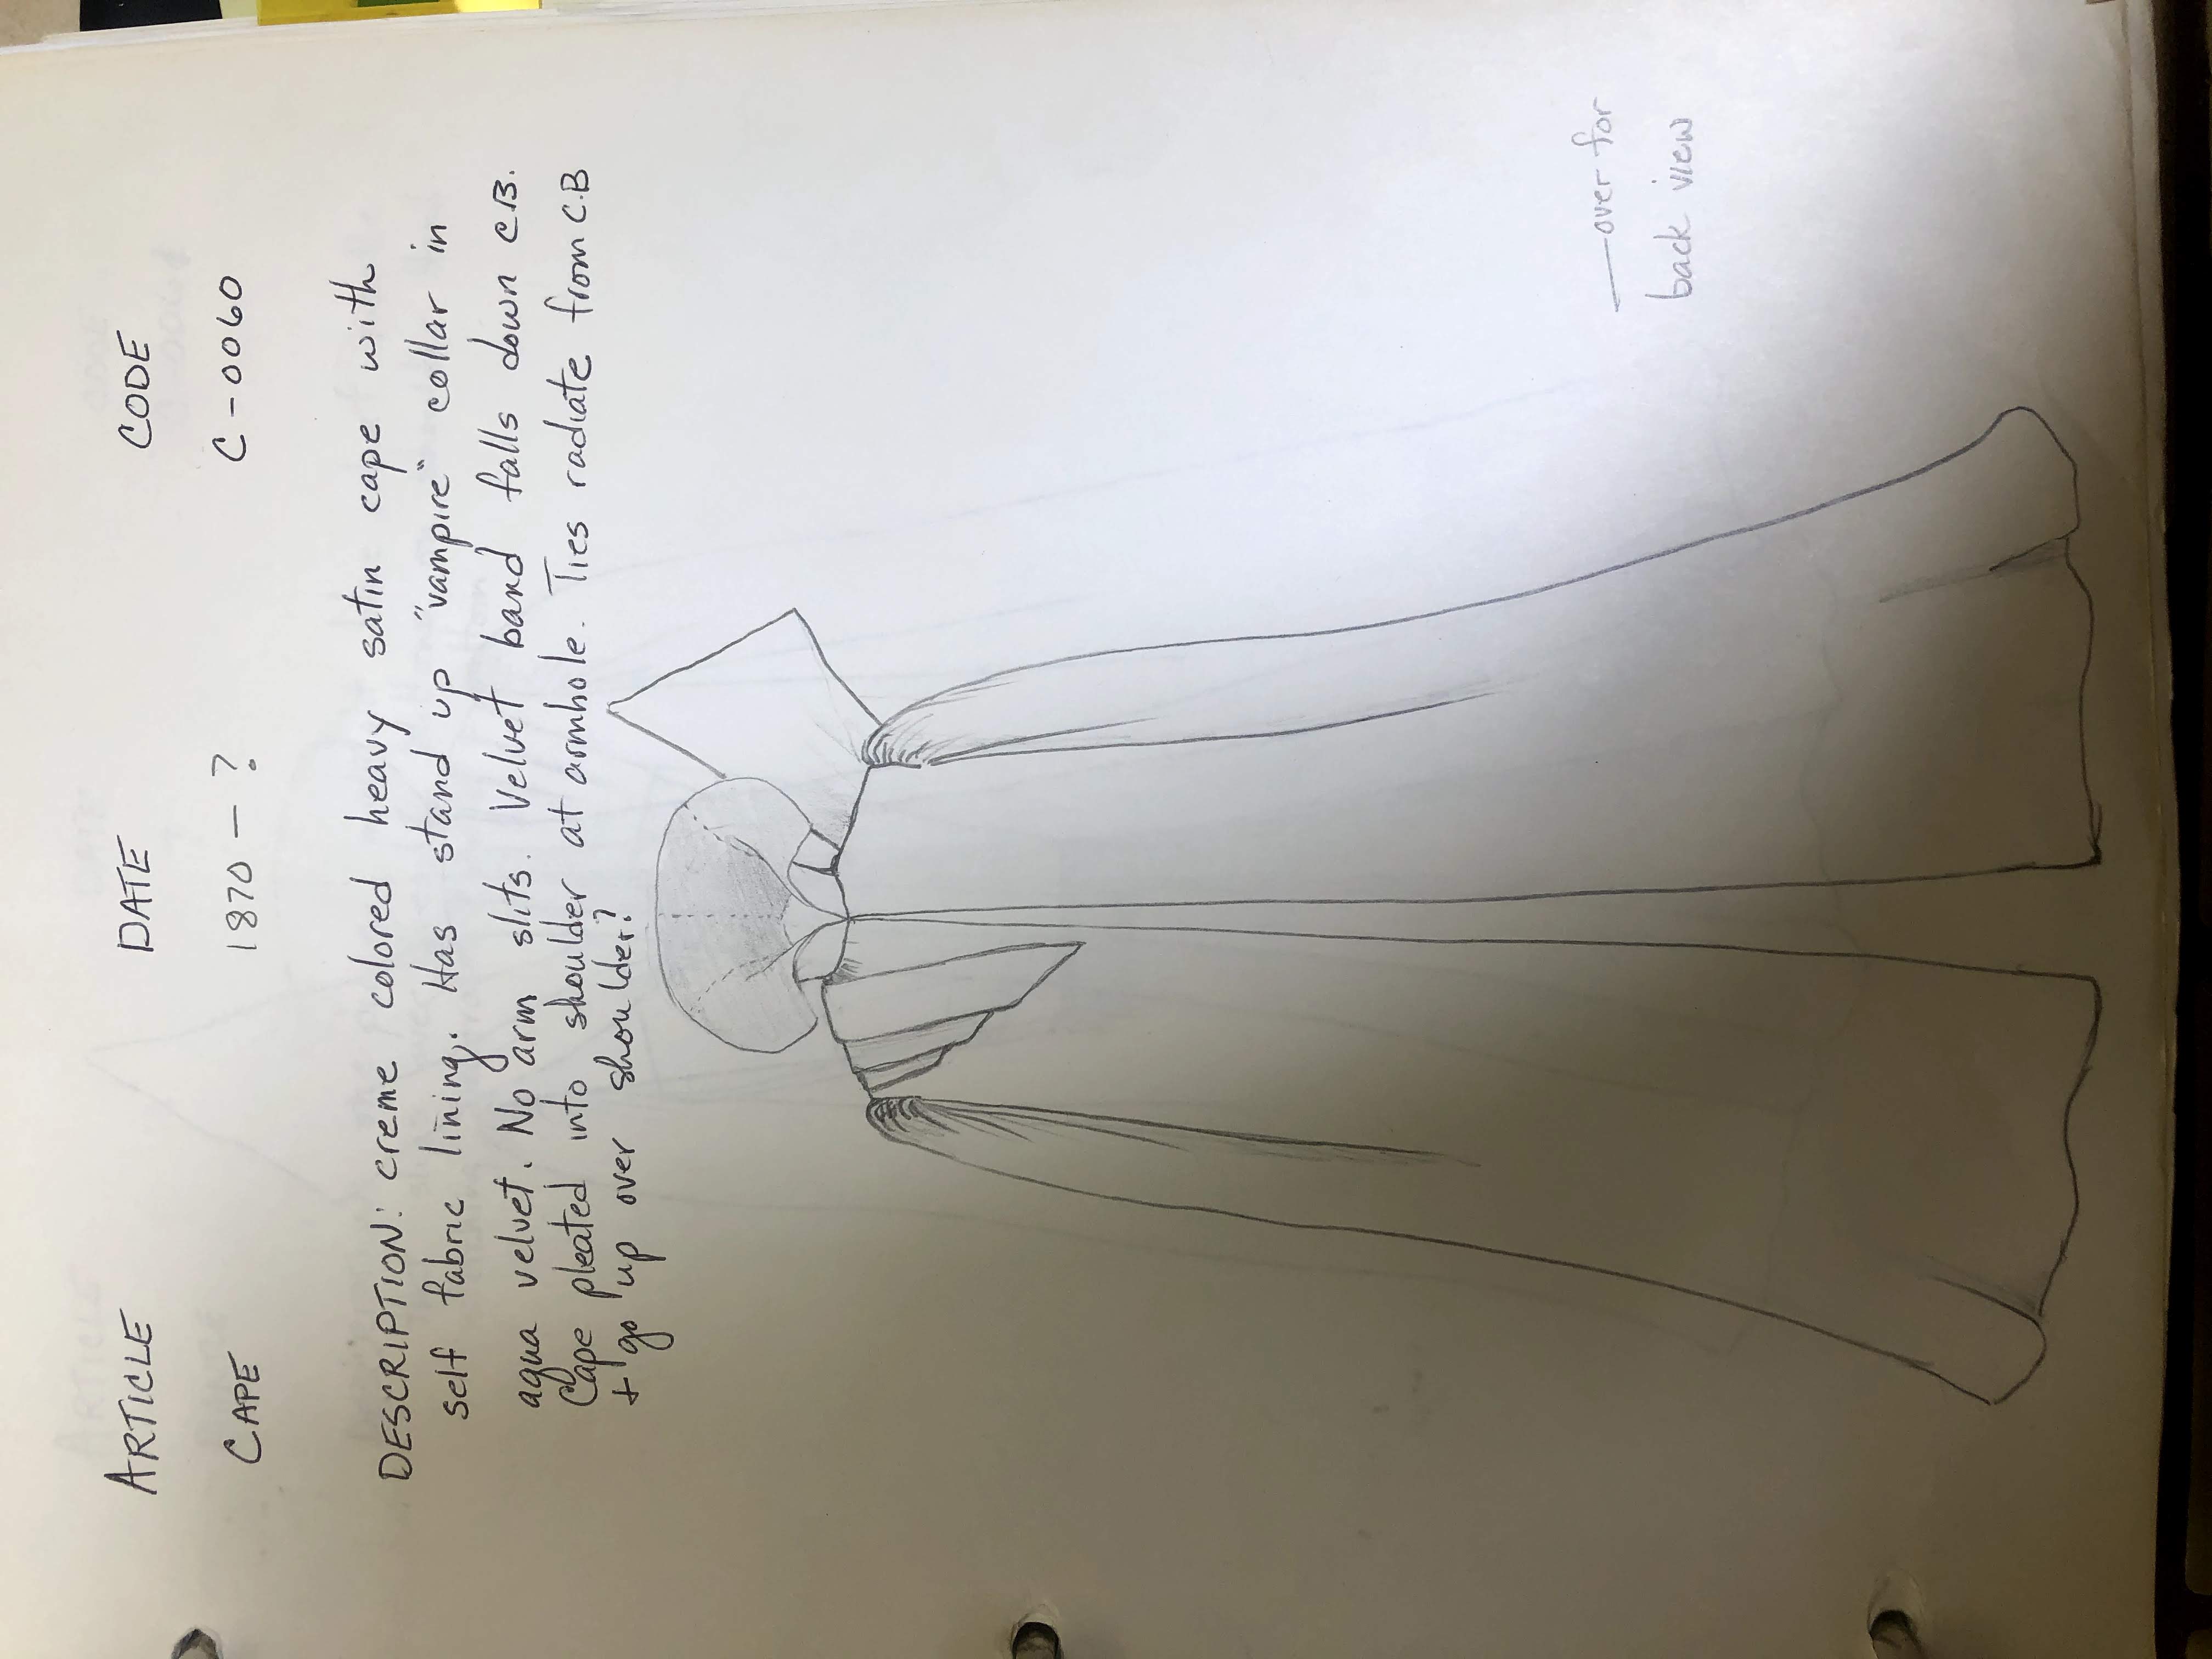 ARTICLE DATE CODE
CAPE 1870 — ? C-0060
DESCRIPTION: creme colored heavy satin cape with
self fabric lining. Has stand up "vampire" collar in
aqua velvet. No arm slits. Velvet band falls down C.B.
Cape pleated into shoulder at armhole. Ties radiate from C.B
+ go up over shoulder?
—over for
back view